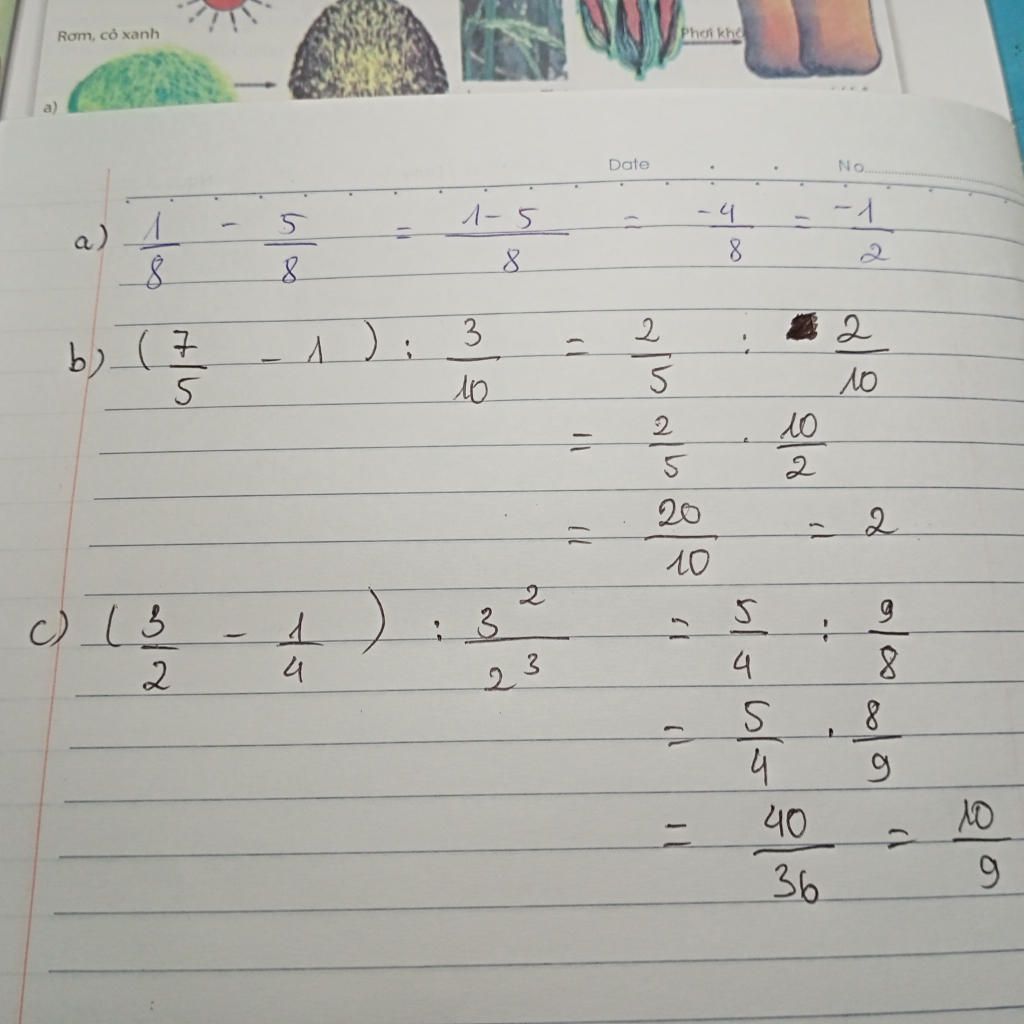 Rơm, cỏ xanh
Phơi khô
a)
Date No
a) 1/8 - 5/8 = 1-5/8 = -4/8 = -1/2
b) (7/5 - 1) : 3/10 = 2/5 : 2/10
= 2/5 . 10/2
= 20/10 = 2
c) (3/2 - 1/4) : 3²/2³ = 5/4 : 9/8
= 5/4 . 8/9
= 40/36 = 10/9